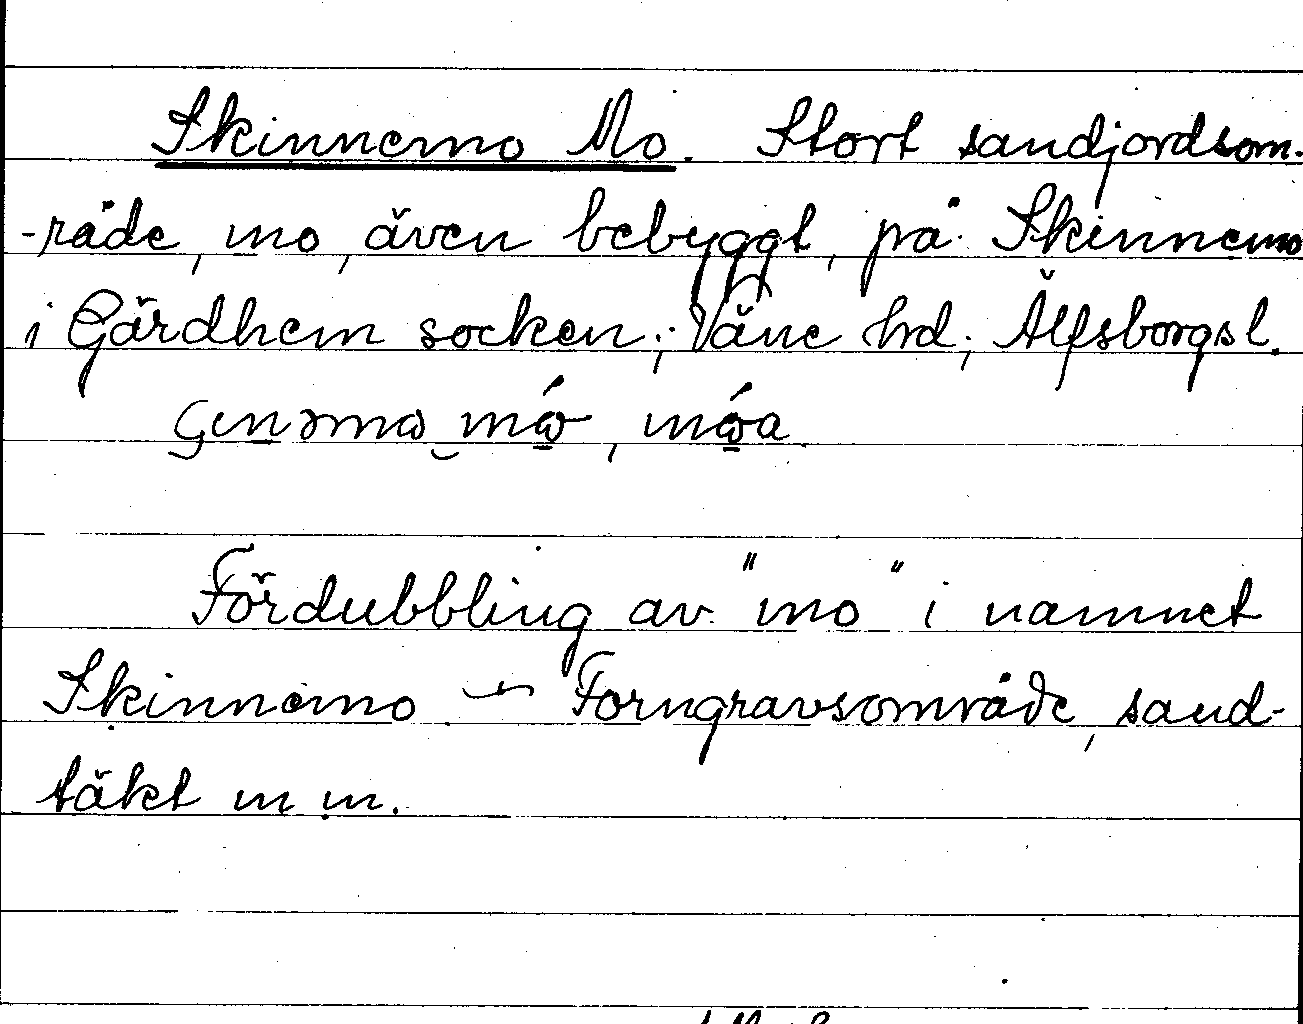 Skinnemo Mo. Stort sandjordsom-
-råde, mo, även bebyggt, på Skinnemo
i Gärdhem socken; Väne hd, Älfsborgsl.
mó̱, mó̱a
Fördubbling av "mo" i namnet
Skinnemo — Forngravsområde, sand-
täkt m m.